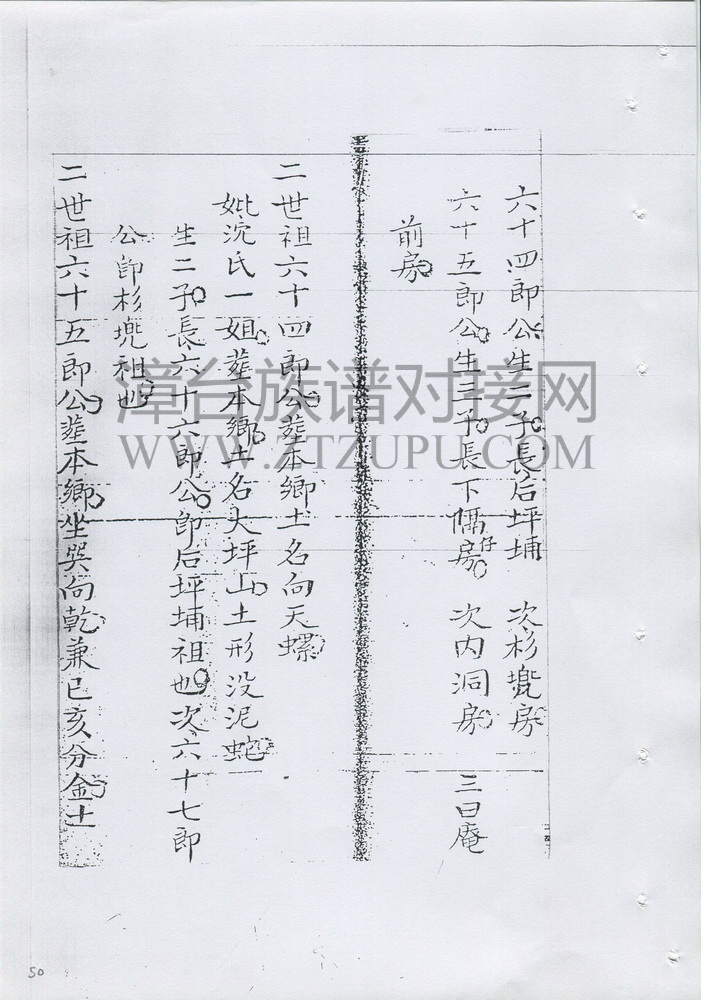 六十四郎公生二子長后坪埔 次杉兠房
六十五郎公生三子長下偶仔房 次内洞房 三曰庵
前房
二世祖六十四郎公𦵏本鄉土名向天螺
妣沈氏一姐𦵏本鄉土名大坪山土形没泥蛇
生二子長六十六郎公即后坪埔祖也次六十七郎
公即杉兠祖也
二世祖六十五郎公𦵏本鄉坐巽向乾兼已亥分金土
漳台族谱对接网
WWW.ZTZUPU.COM
50